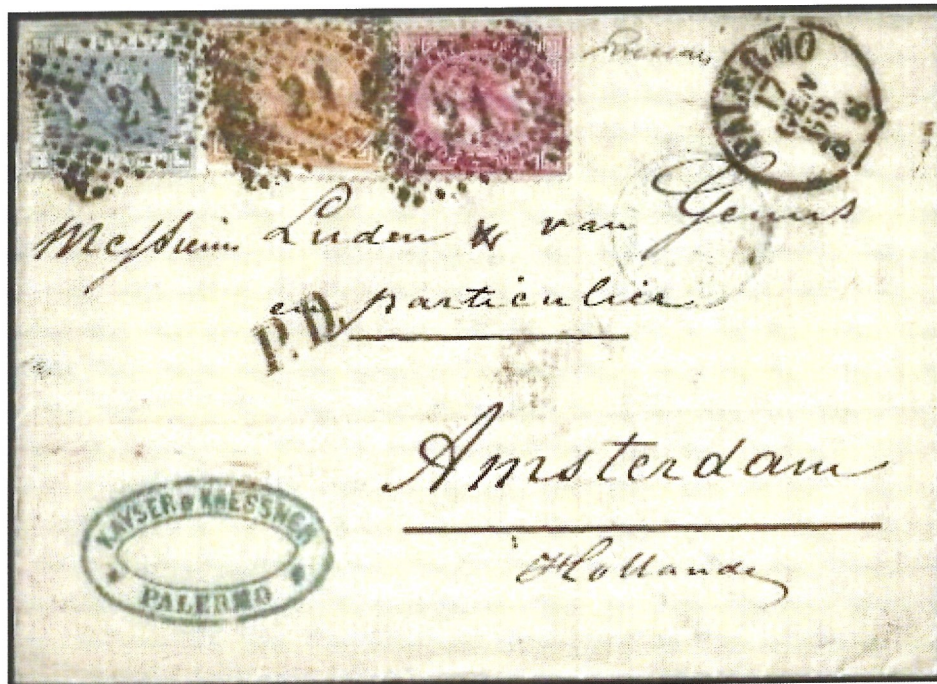 21 21 21
PALERMO
17
GEN
68
3 S
Messieurs Luden & van Geuns
en particulier
P.D.
Amsterdam
Hollande
KAYSER & KRESSNER
PALERMO